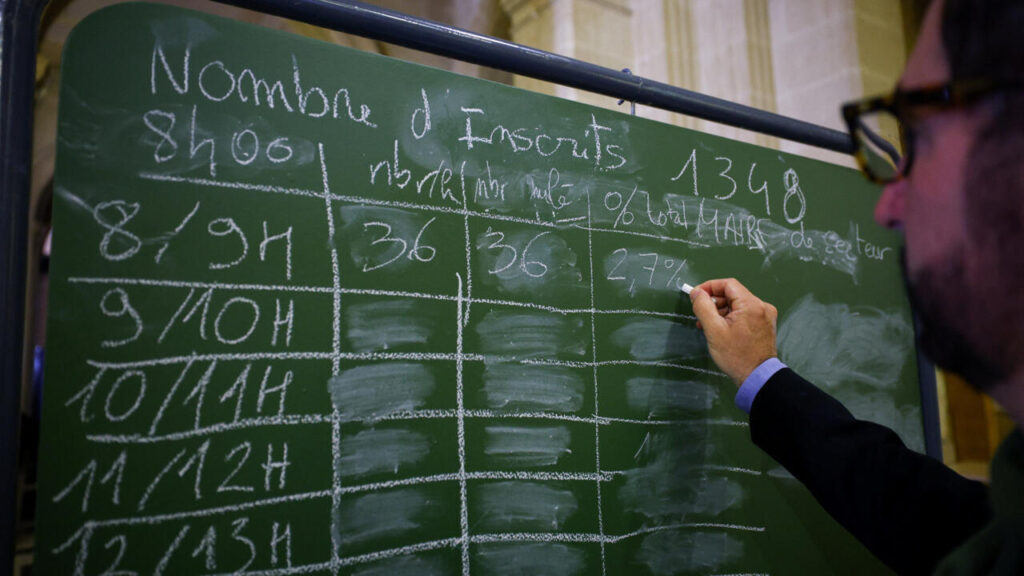 Nombre d'Inscrits 1348
8h00 nbr/h nbr % total MAIRE
8/9H 36 36 2,7%
9/10H
10/11H
11/12H
12/13H